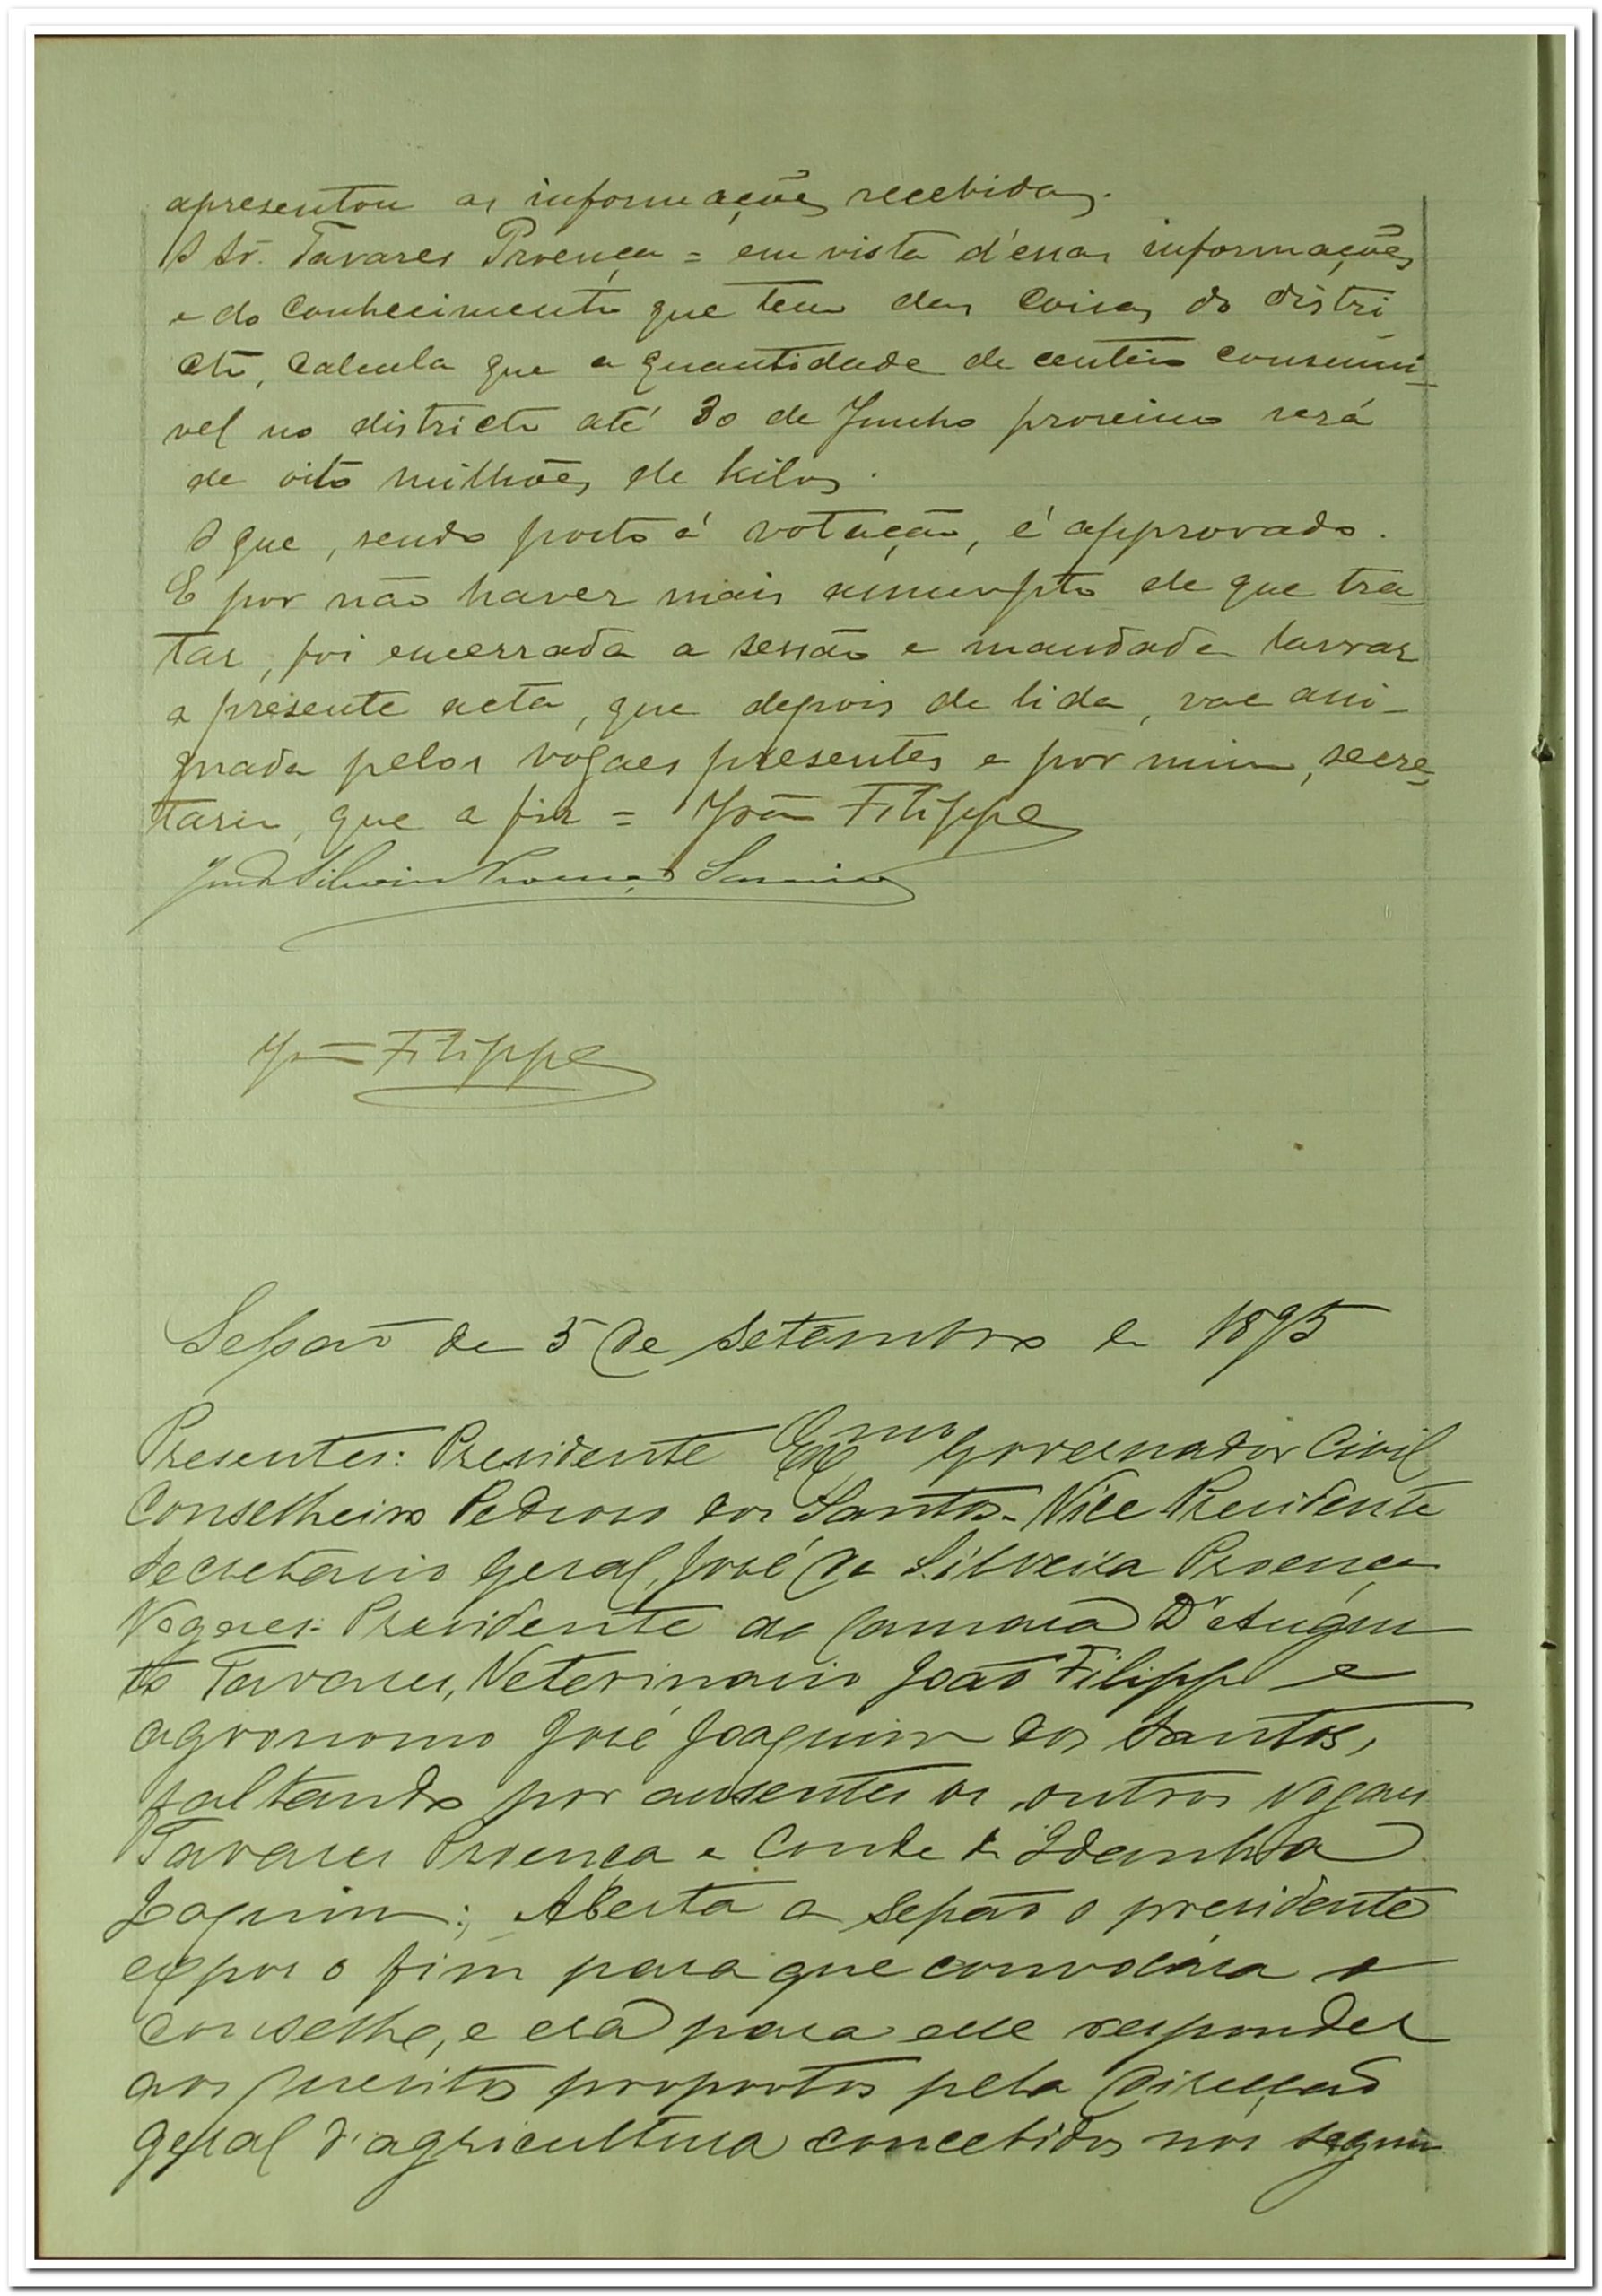 apresentou as informações recebidas.
O Sr. Tavares Proença = em vista d'essas informações
e do conhecimento que tem das coisas do distri
cto, calcula que a quantidade de centeio consumi-
vel no districto até 30 de Junho proximo será
de oito milhões de kilos.
O que, sendo posto á votação, é approvado.
E por não haver mais assumpto de que tra-
tar, foi encerrada a sessão e mandada lavrar
a presente acta, que depois de lida, vae assi-
gnada pelos vogaes presentes e por mim, secre-
tario, que a fiz = João Filippe
José Silveira Proença
João Filippe
Sessão de 5 de Setembro de 1895
Presentes: Presidente Exmo Governador Civil
Conselheiro Pedroso dos Santos. Vice Presidente
Secretario Geral, José da Silveira Proença
Vogaes: Presidente da Camara Dr Augus
to Tavares, Veterinario João Filippe e
agronomo José Joaquim dos Santos,
faltando por ausentes os outros vogaes
Tavares Proença e Conde de Idanha
Joaquim; Aberta a Sessão o presidente
expos o fim para que convocára o
conselho, e era para elle responder
aos quesitos propostos pela Direcção
Geral d'agricultura concebidos nos seguin